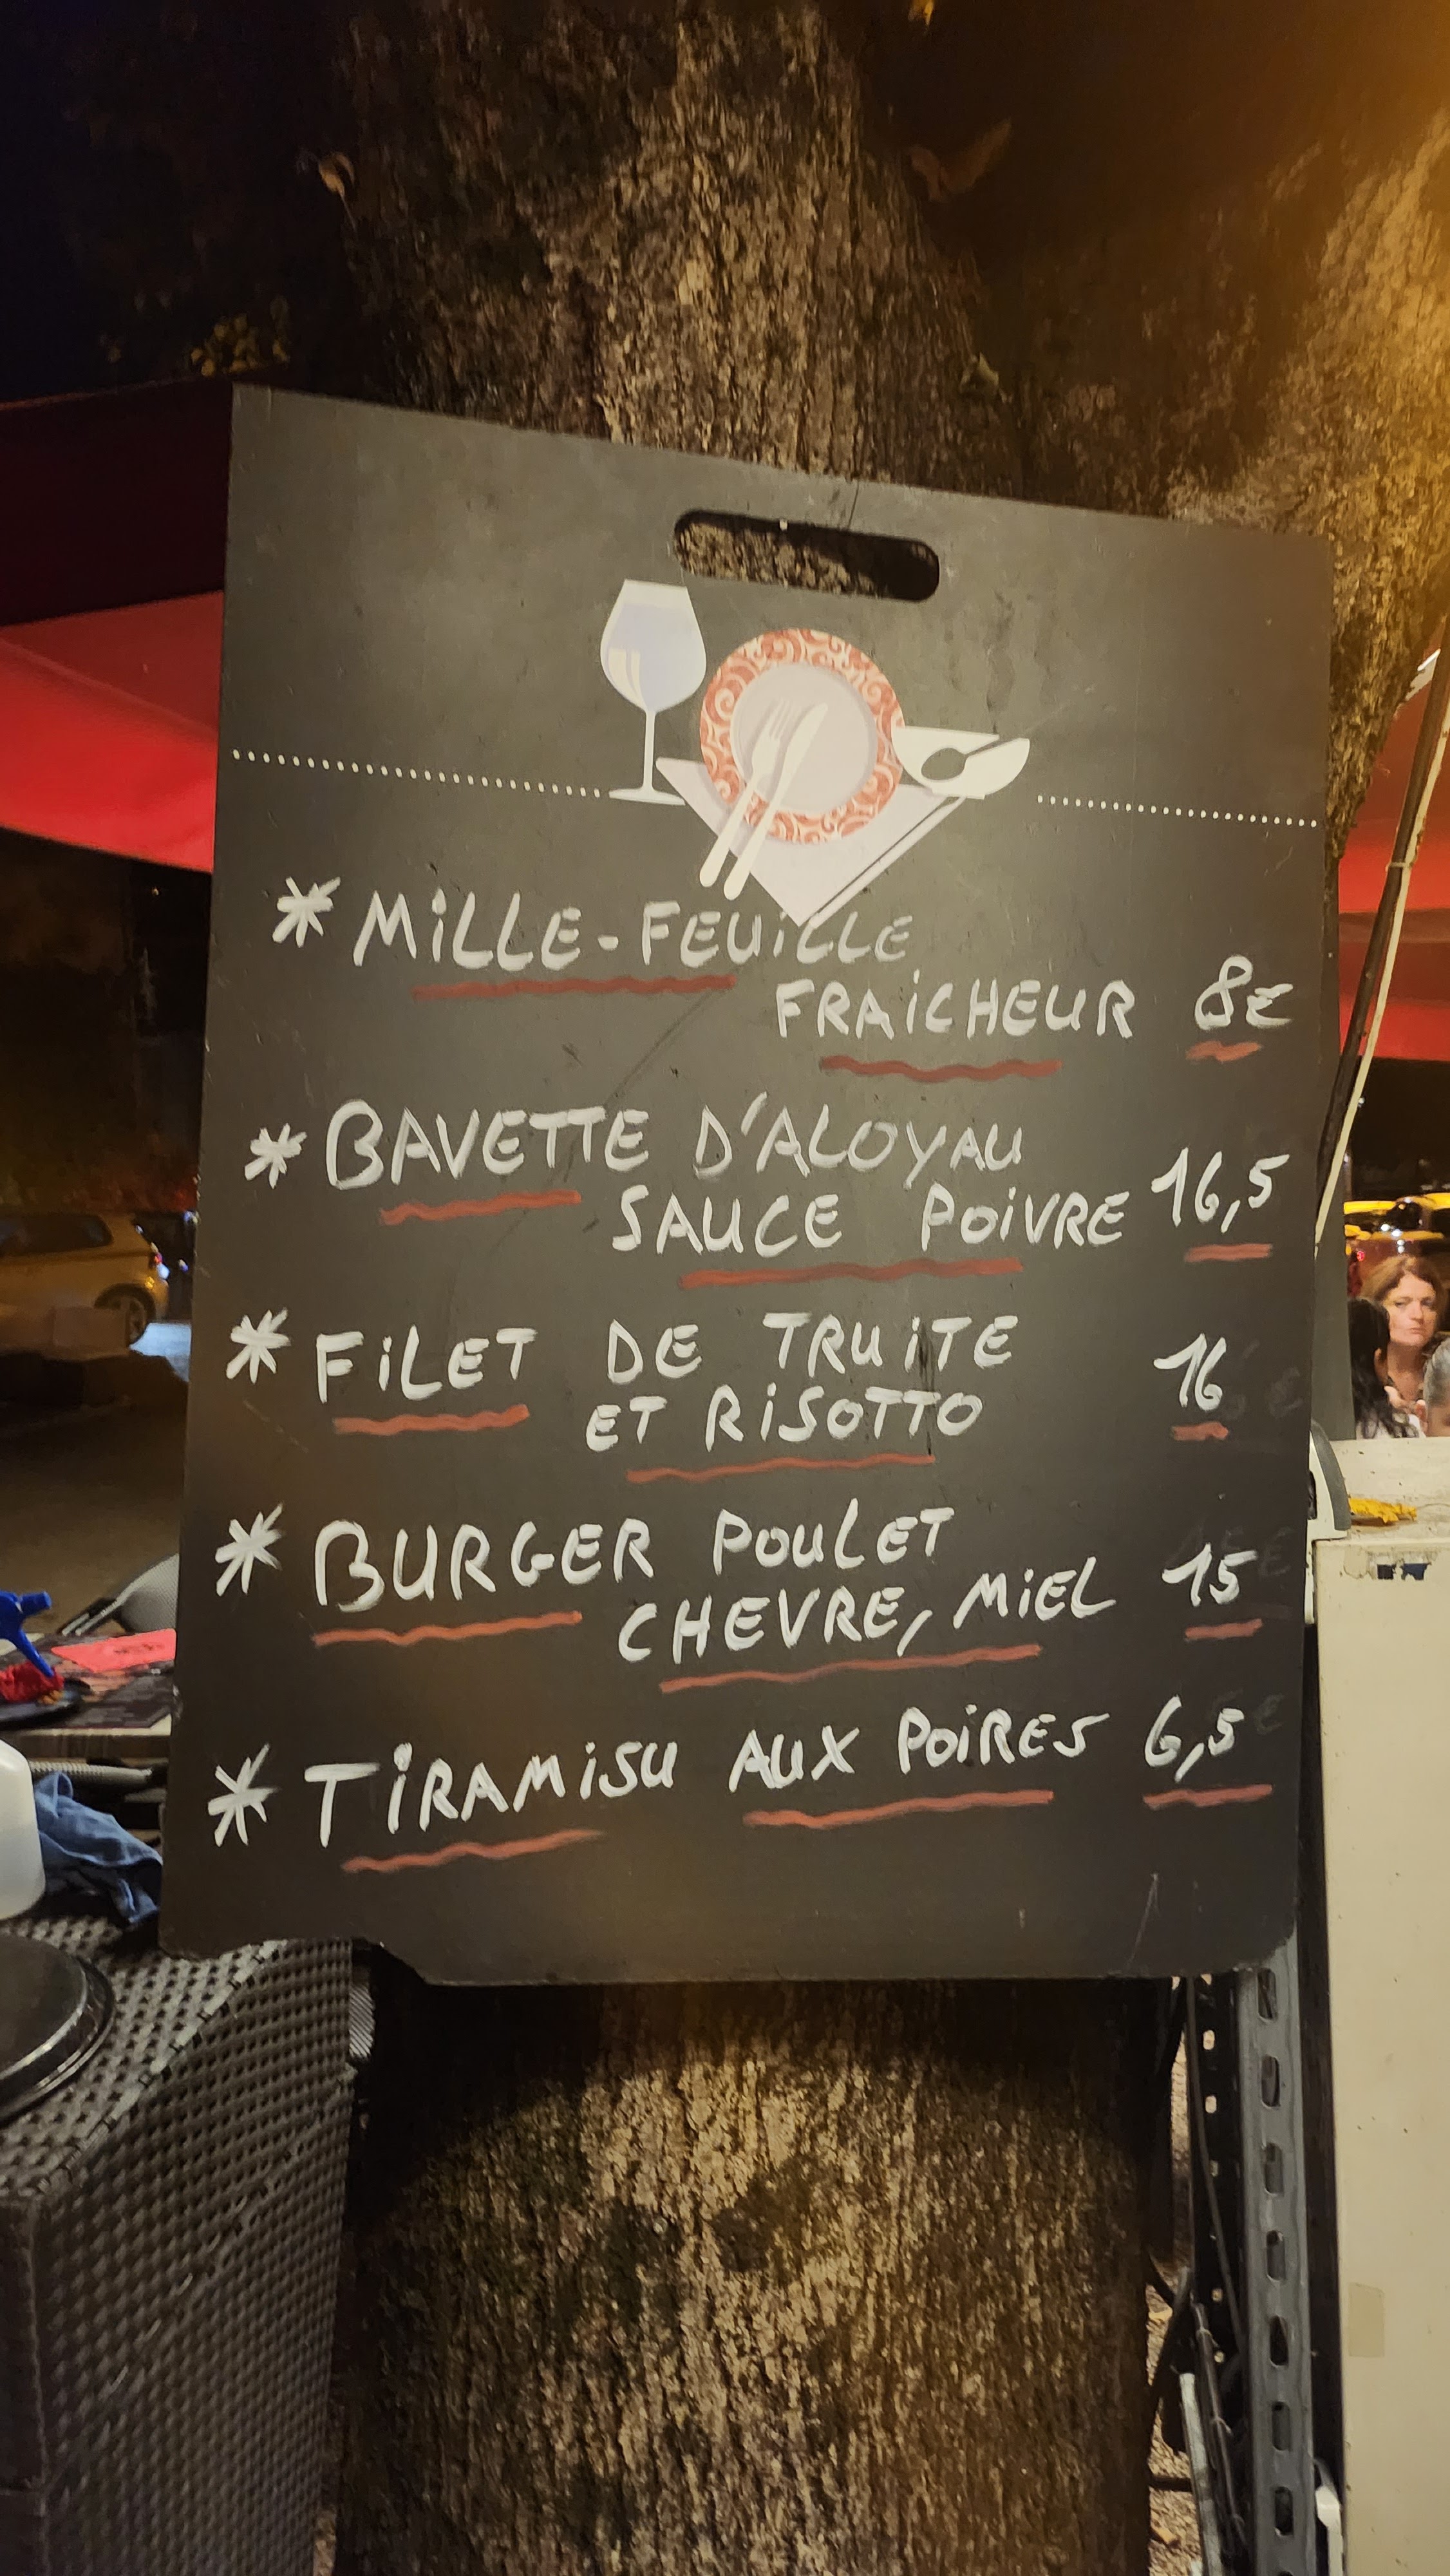 * MiLLE-FEUiLLE
FRAiCHEUR 8€
* BAVETTE D'ALOYAU
SAUCE POiVRE 16,5
* FiLET DE TRUiTE
ET RiSOTTO 16
* BURGER POULET
CHEVRE, MiEL 15
* TiRAMiSU AUX POiRES 6,5